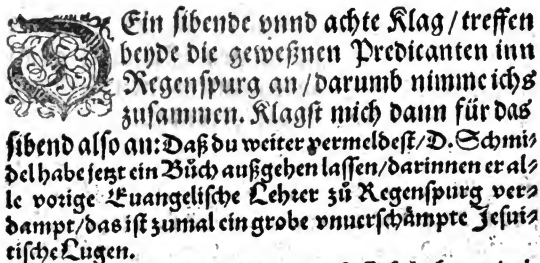 DEin sibende vnnd achte Klag/treffen
beyde die geweßnen Predicanten inn
Regenspurg an/darumb nimme ichs
zusammen. Klagst mich dann für das
sibend also an: Daß du weiter vermeldest/D. Schmi-
del habe jetzt ein Bůch außgehen lassen/darinnen er al-
le vorige Euangelische Lehrer zů Regenspurg ver-
dampt/das ist zumal ein grobe vnuerschämpte Jesui-
tische Lugen.